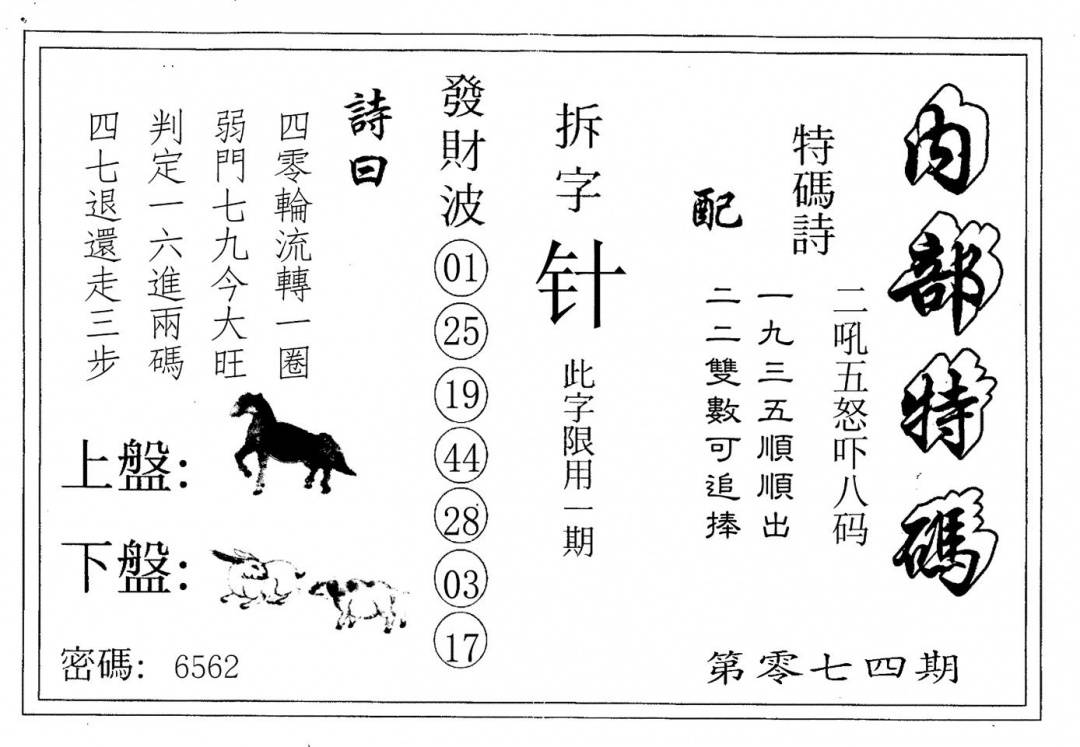 內部特碼
特碼詩
二吼五怒吓八码
配
一九三五順順出
二二雙數可追捧
拆字
针
此字限用一期
發財波
01
25
19
44
28
03
17
詩曰
四零輪流轉一圈
弱門七九今大旺
判定一六進兩碼
四七退還走三步
上盤：
下盤：
密碼：6562
第零七四期